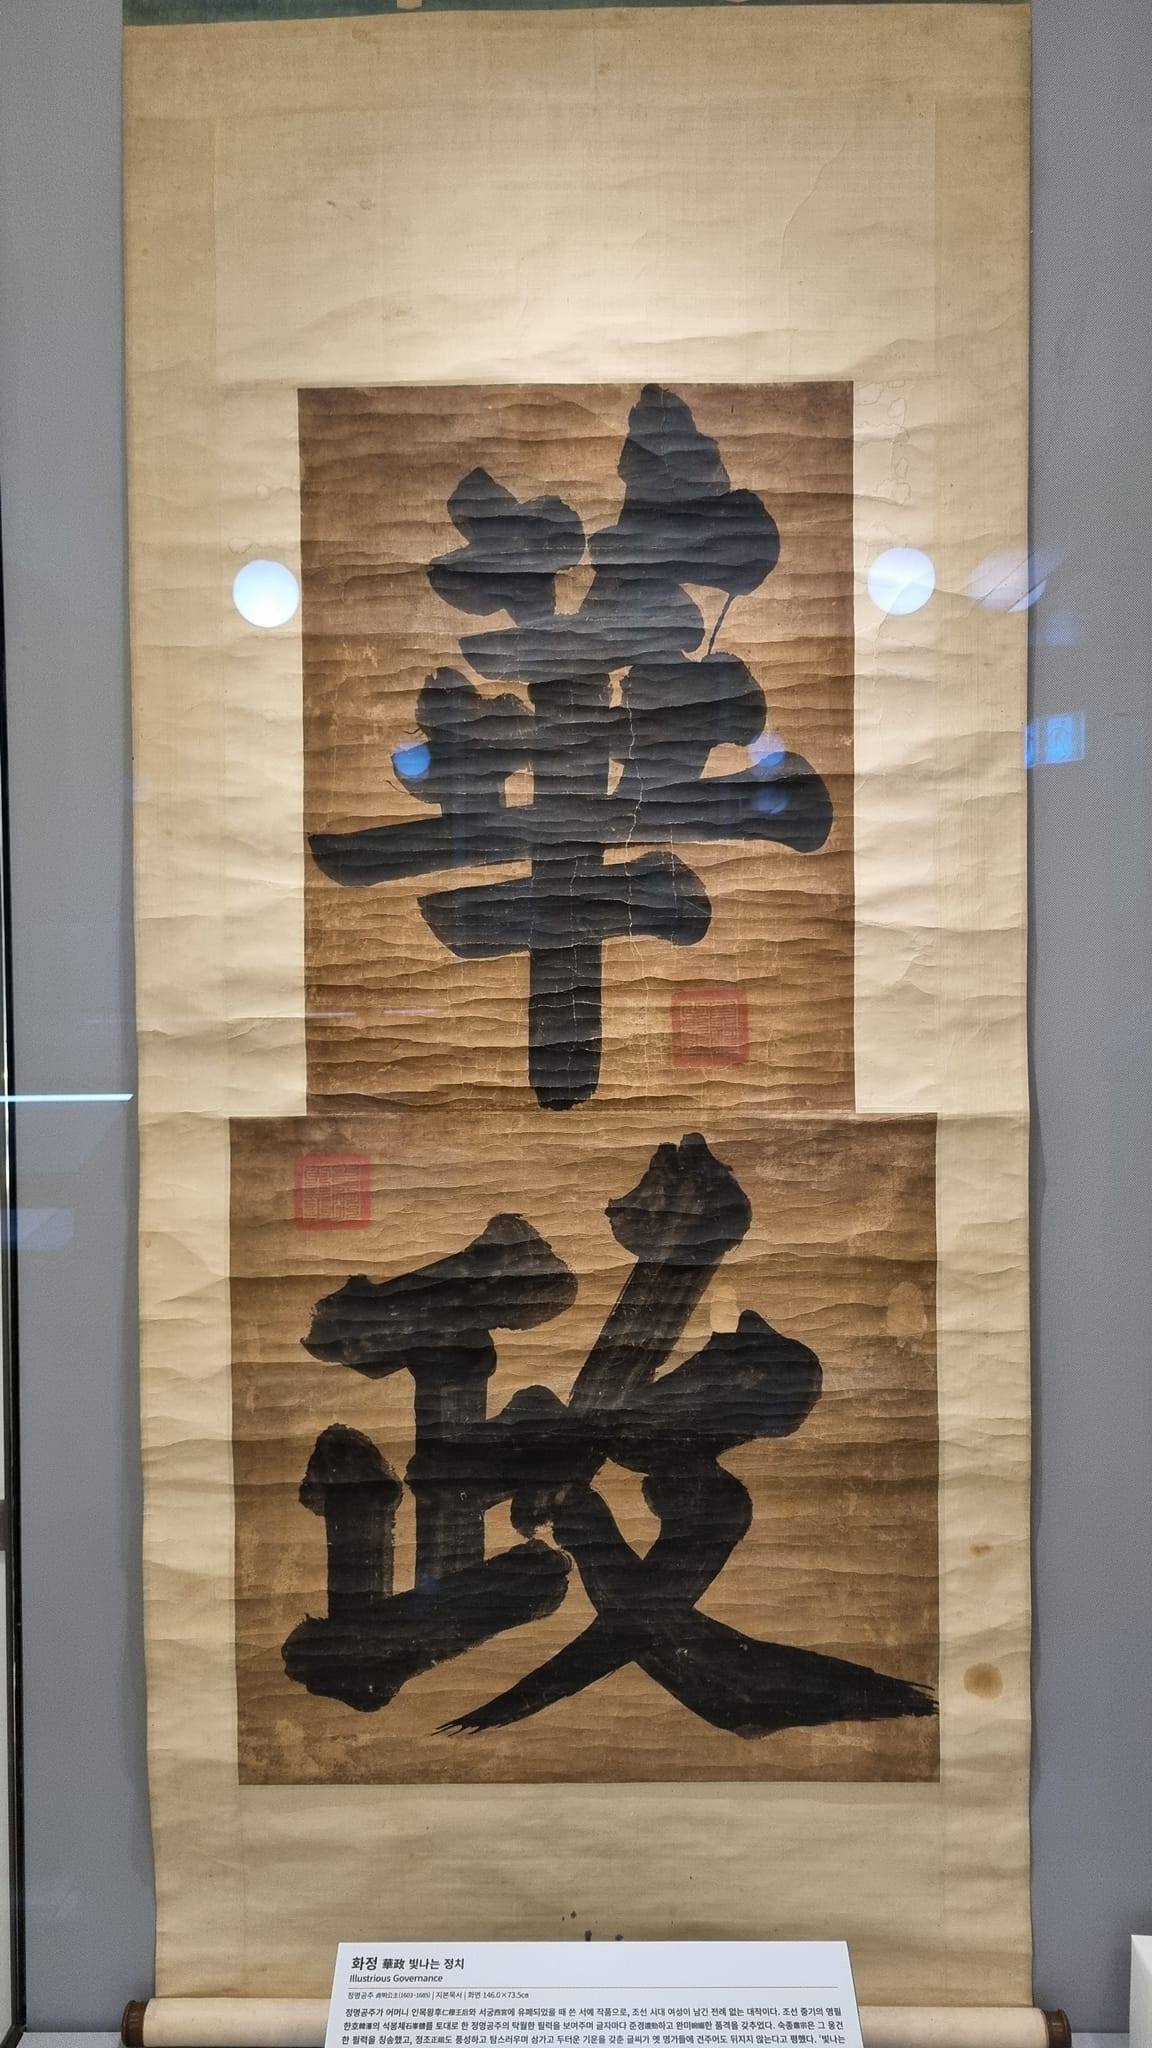 華
政
화정 華政 빛나는 정치
Illustrious Governance
정명공주 貞明公主(1603-1685) | 지본묵서 | 화면 146.0×73.5㎝
정명공주가 어머니 인목왕후仁穆王后와 서궁西宮에 유폐되었을 때 쓴 서예 작품으로, 조선 시대 여성이 남긴 전례 없는 대작이다. 조선 중기의 명필
한호韓濩의 석봉체石峯體를 토대로 한 정명공주의 탁월한 필력을 보여주며 글자마다 준경遒勁하고 완미婉媚한 품격을 갖추었다. 숙종肅宗은 그 웅건
한 필력을 칭송했고, 정조正祖도 풍성하고 탐스러우며 삼가고 두터운 기운을 갖춘 글씨가 옛 명가들에 견주어도 뒤지지 않는다고 평했다. '빛나는